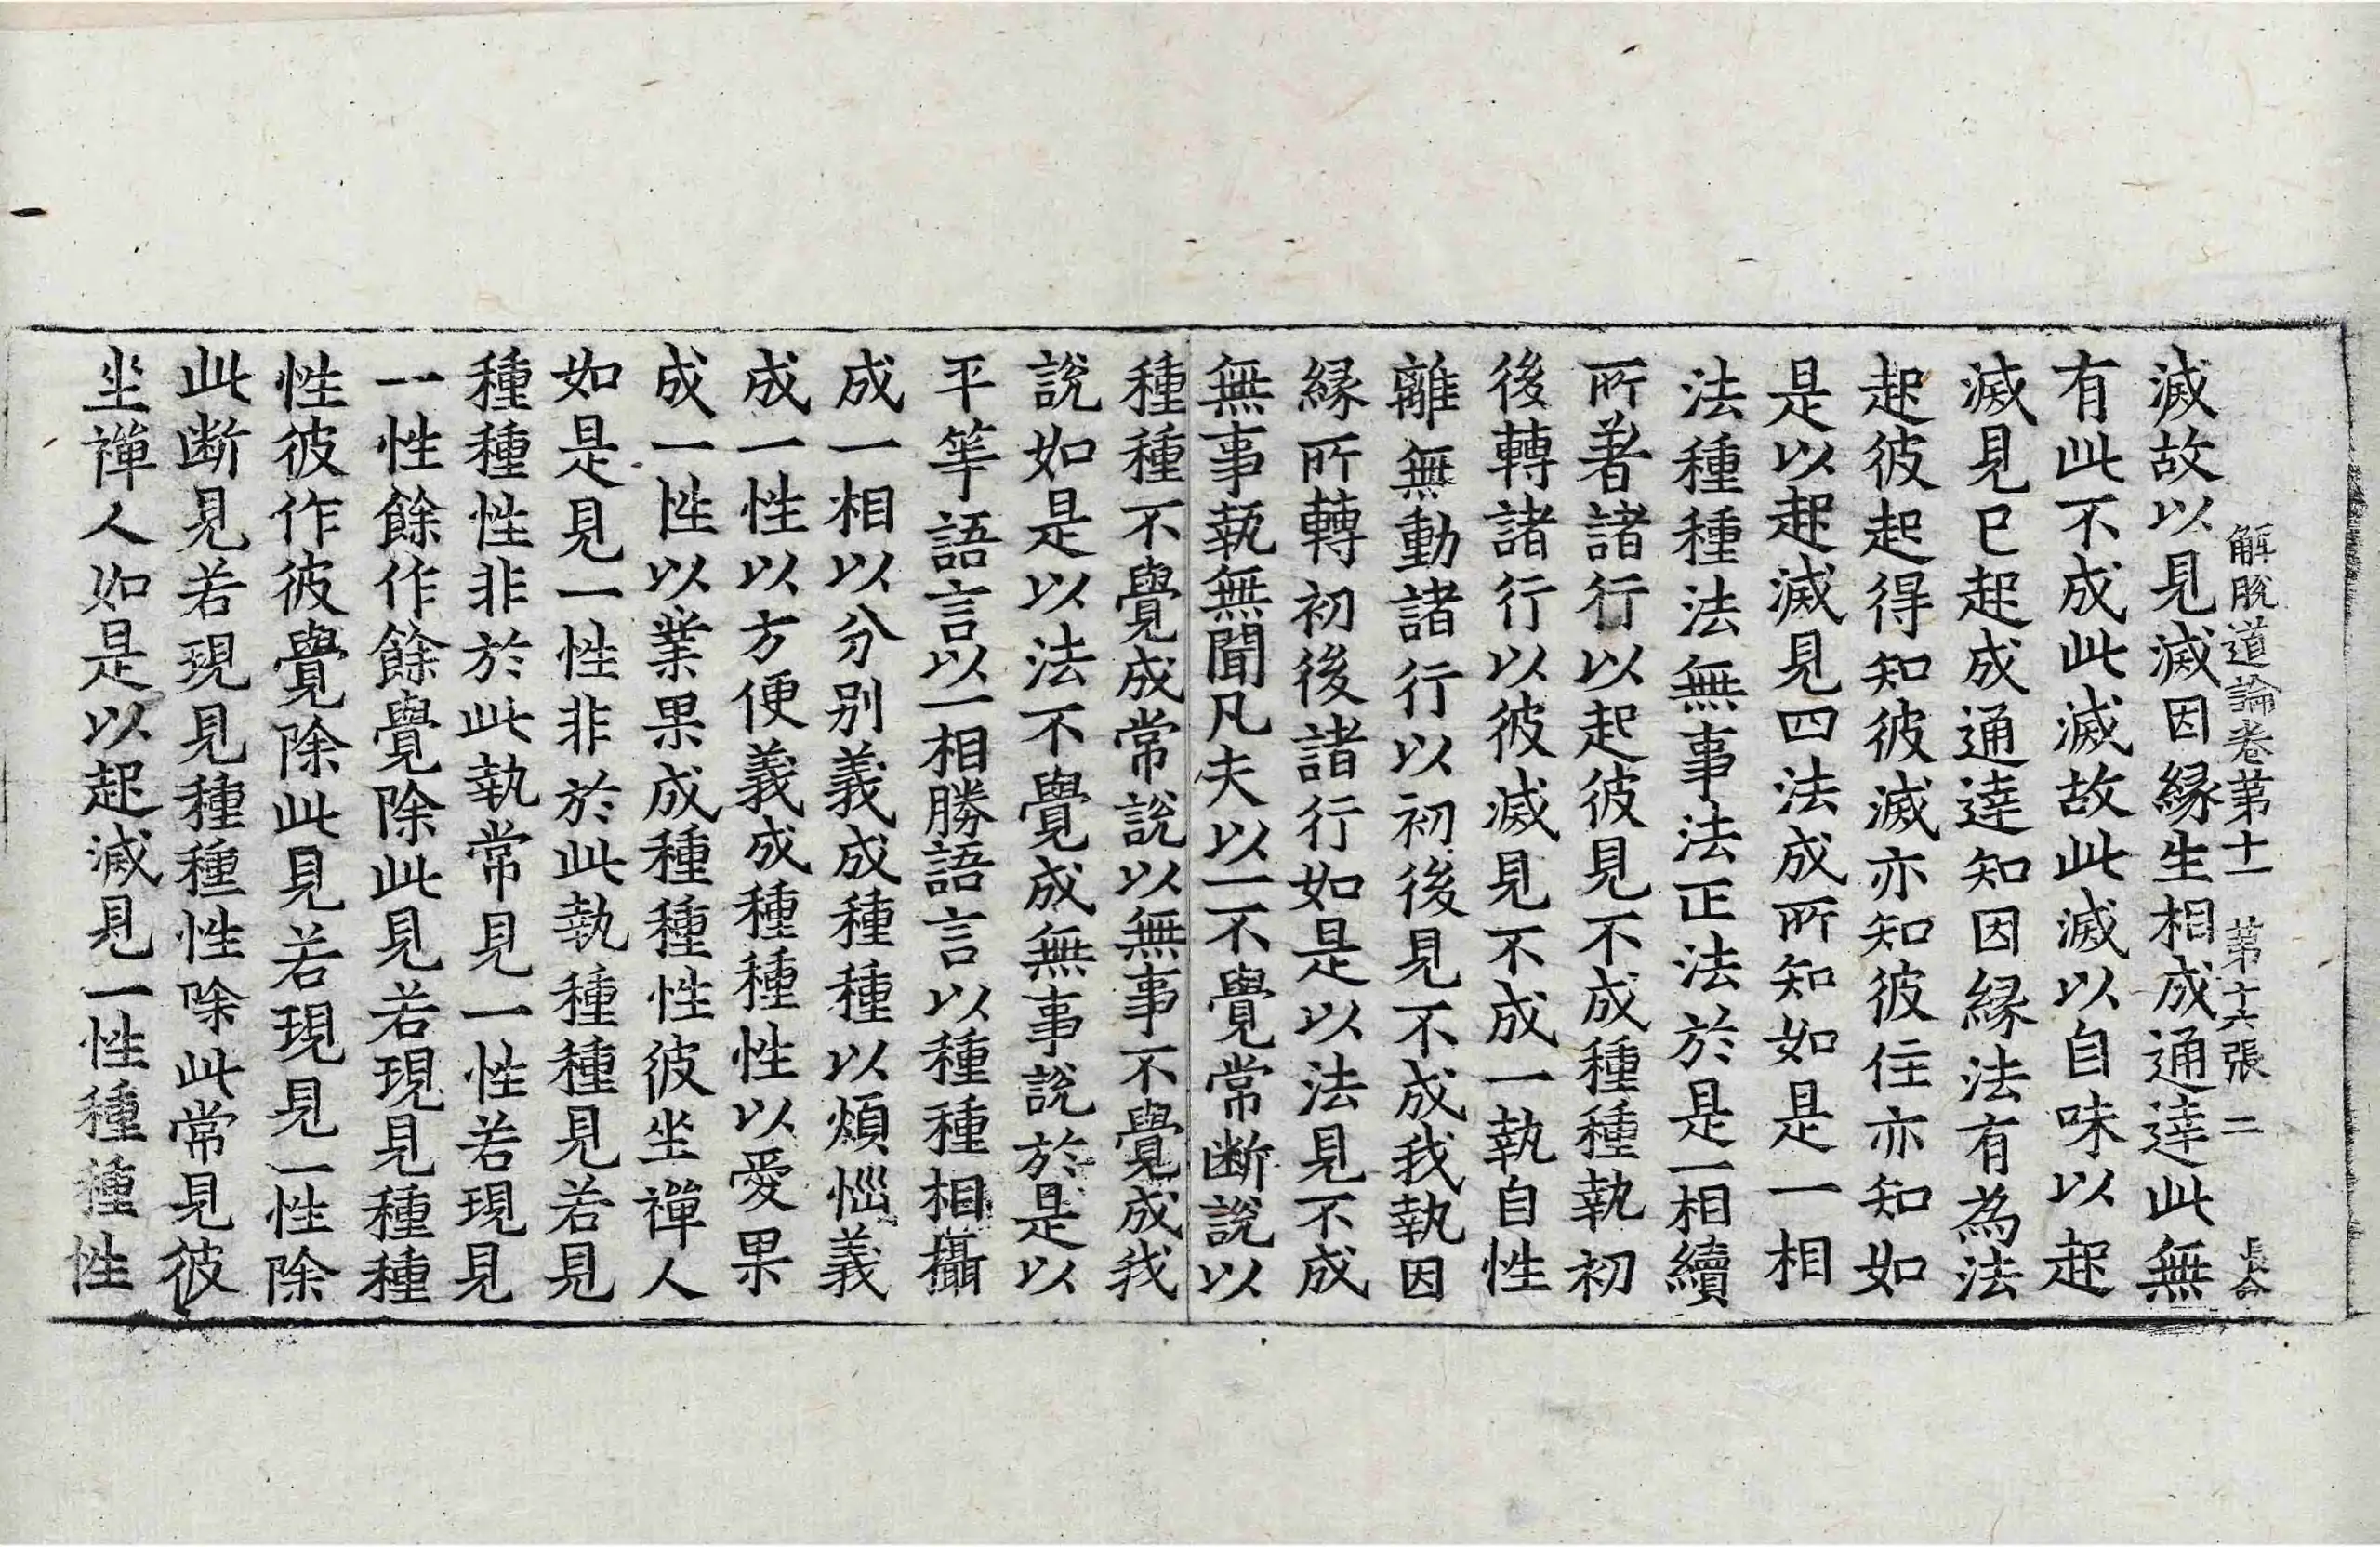 解脫道論卷第十一 第十六張 二 長命
滅故以見滅因緣生相成通達此無
有此不成此滅故此滅以自味以起
滅見已起成通達知因緣法有為法
起彼起得知彼滅亦知彼住亦知如
是以起滅見四法成所知如是一相
法種種法無事法正法於是一相續
所著諸行以起彼見不成種種執初
後轉諸行以彼滅見不成一執自性
離無動諸行以初後見不成我執因
緣所轉初後諸行如是以法見不成
無事執無聞凡夫以一不覺常断說以
種種不覺成常說以無事不覺成我
說如是以法不覺成無事說於是以
平等語言以一相勝語言以種種相攝
成一相以分別義成種種以煩惱義
成一性以方便義成種種性以愛果
成一性以業果成種種性彼坐禪人
如是見一性非於此執種種見若見
種種性非於此執常見一性若現見
一性餘作餘覺除此見若現見種種
性彼作彼覺除此見若現見一性除
此断見若現見種種性除此常見彼
坐禪人如是以起滅見一性種種性